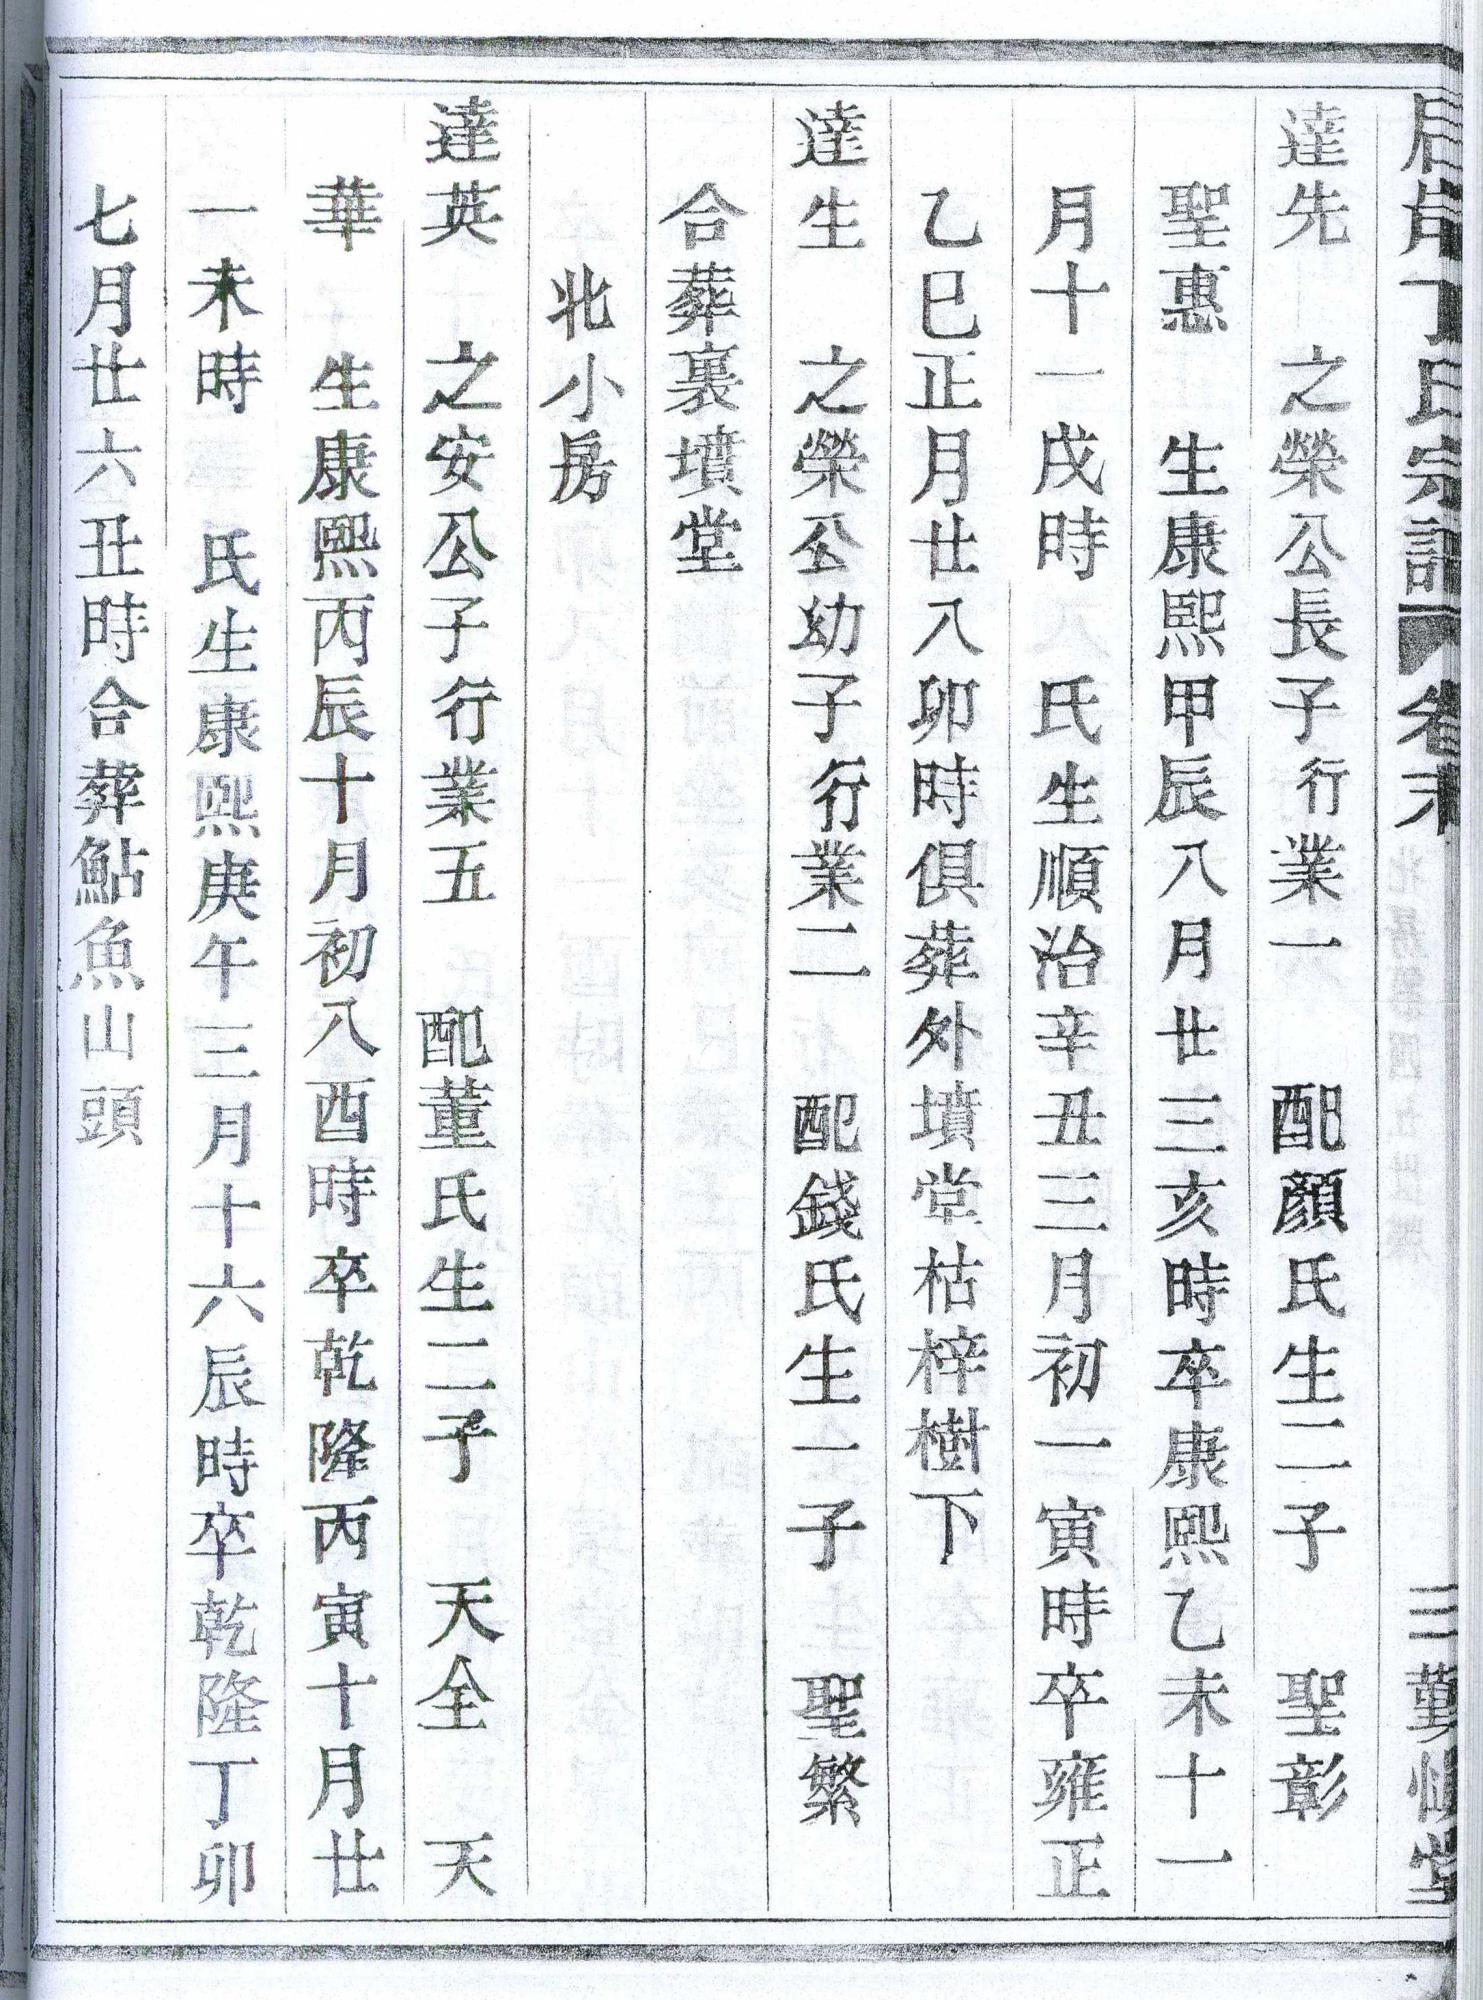 丁氏宗譜 卷末 三 勤慎堂
達先 之榮公長子行業一 配顏氏生二子 聖彰
聖惠 生康熙甲辰八月廿三亥時卒康熙乙未十一
月十一戌時 氏生順治辛丑三月初一寅時卒雍正
乙巳正月廿八卯時俱葬外墳堂枯梓樹下
達生 之榮公幼子行業二 配錢氏生一子 聖繁
合葬裏墳堂
北小房
達英 之安公子行業五 配董氏生二子 天全 天
華 生康熙丙辰十月初八酉時卒乾隆丙寅十月廿
一未時 氏生康熙庚午三月十六辰時卒乾隆丁卯
七月廿六丑時合葬鮎魚山頭